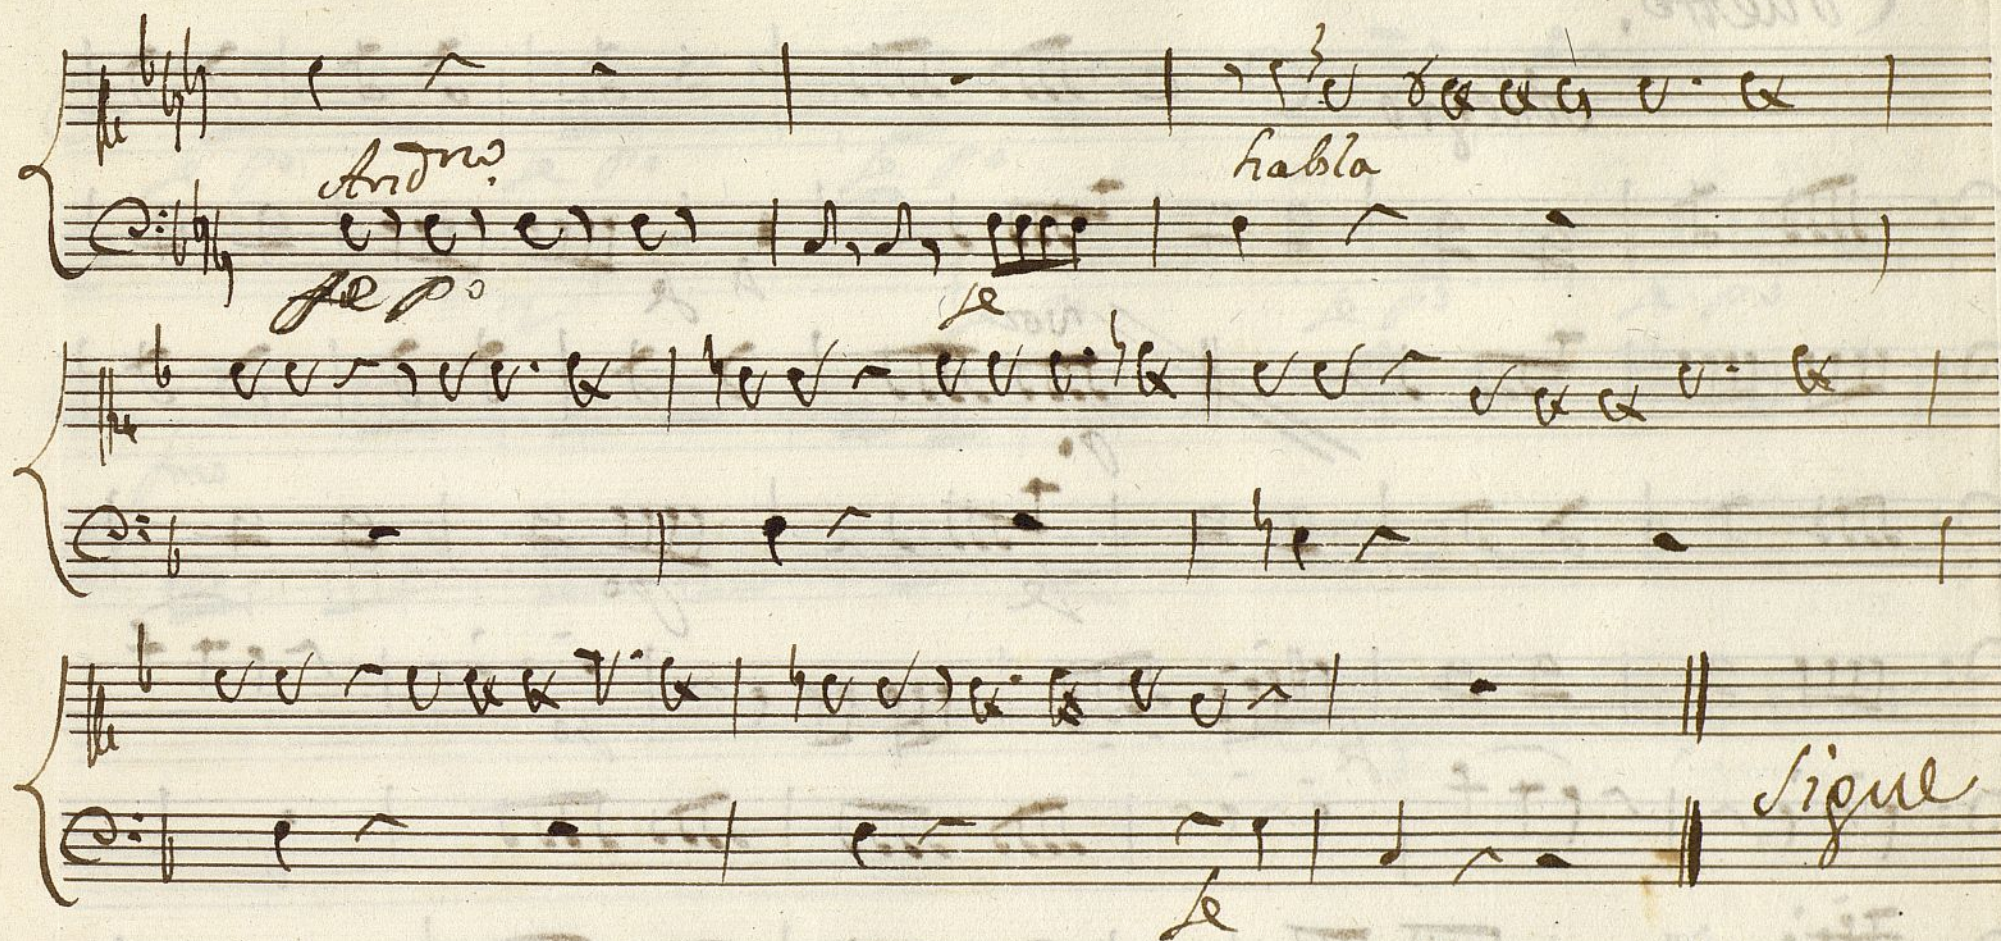 Andno.
habla
fe po
fe
Sigue
fe